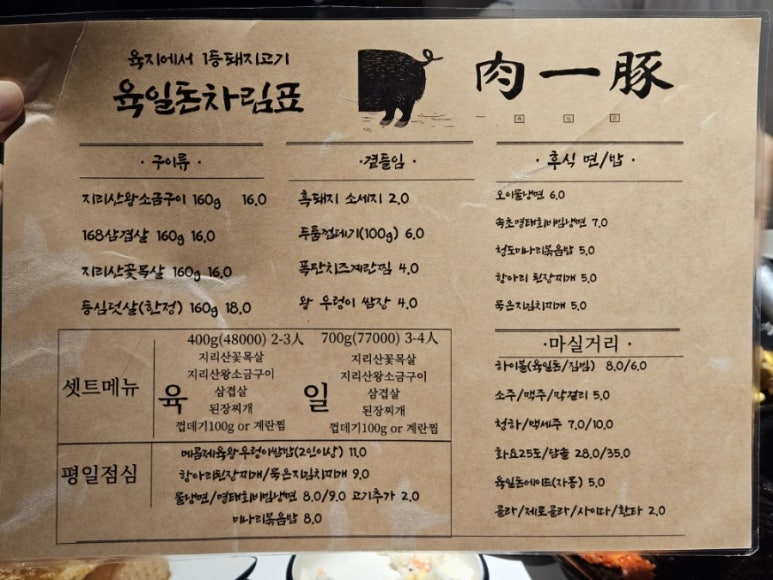 육지에서 1등돼지고기
육일돈차림표
肉一豚
· 구이류 ·
지리산왕소금구이 160g 16.0
168삼겹살 160g 16.0
지리산꽃목살 160g 16.0
등심덧살(한정) 160g 18.0
·곁들임 ·
흑돼지 소세지 2.0
두툼껍데기(100g) 6.0
폭탄치즈계란찜 4.0
왕 우렁이 쌈장 4.0
· 후식 면/밥 ·
오이물냉면 6.0
속초명태회비빔냉면 7.0
청도미나리볶음밥 5.0
항아리 된장찌개 5.0
묵은지김치찌개 5.0
셋트메뉴
육
400g(48000) 2-3人
지리산꽃목살
지리산왕소금구이
삼겹살
된장찌개
껍데기100g or 계란찜
일
700g(77000) 3-4人
지리산꽃목살
지리산왕소금구이
삼겹살
된장찌개
껍데기100g or 계란찜
·마실거리 ·
하이볼(육일돈/짐빔) 8.0/6.0
소주/맥주/막걸리 5.0
청하/백세주 7.0/10.0
화요25도/담솔 28.0/35.0
육일돈에이드(자몽) 5.0
콜라/제로콜라/사이다/환타 2.0
평일점심
제육왕우렁이쌈밥(2인이상) 11.0
항아리된장찌개/묵은지김치찌개 9.0
물냉면/명태회비빔냉면 8.0/9.0 고기추가 2.0
미나리볶음밥 8.0